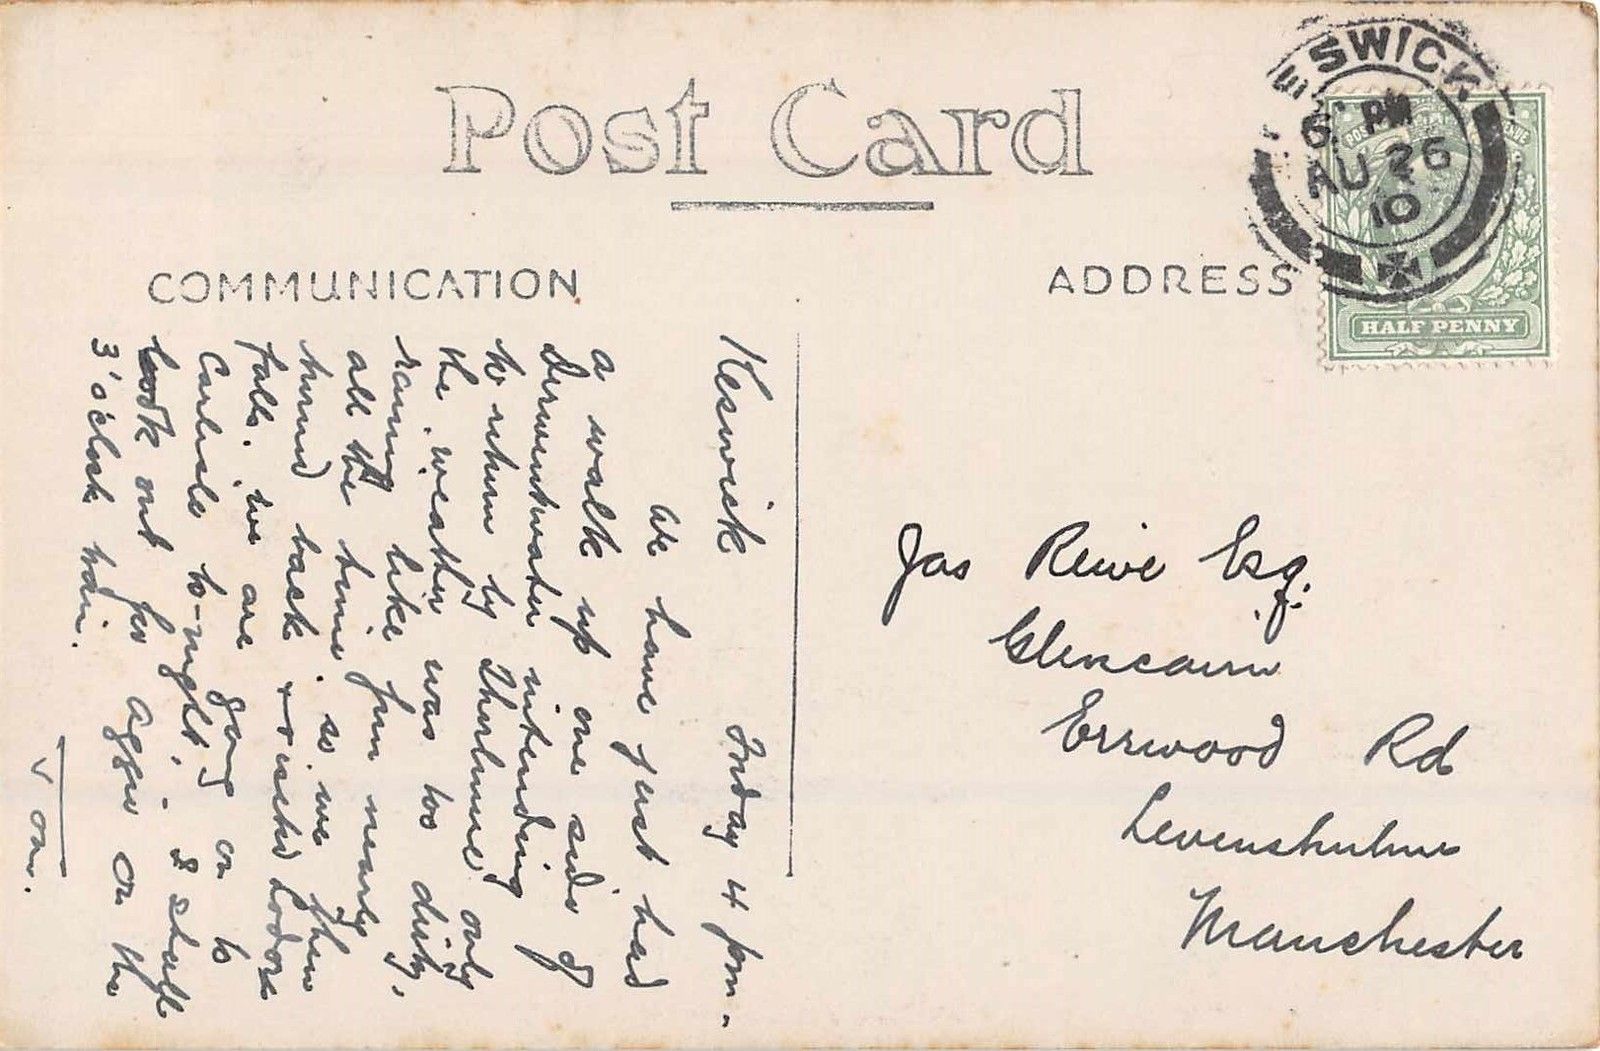 Post Card
COMMUNICATION
ADDRESS
ESWICK
6. PM
AU 26
10
HALF PENNY
Keswick Friday 4 pm.
We have just had
a walk up one side of
Derwentwater intending
to return by Thirlmere only
the weather was too dirty,
raining like fun nearly
all the time. so we then
turned back & visited Lodore
falls. we are going on to
Carlisle to-night. I shall
look out for Aggie on the
3 o'clock train.
Tom.
Jas Esq.
Glencairn
Errwood Rd
Levenshulme
Manchester